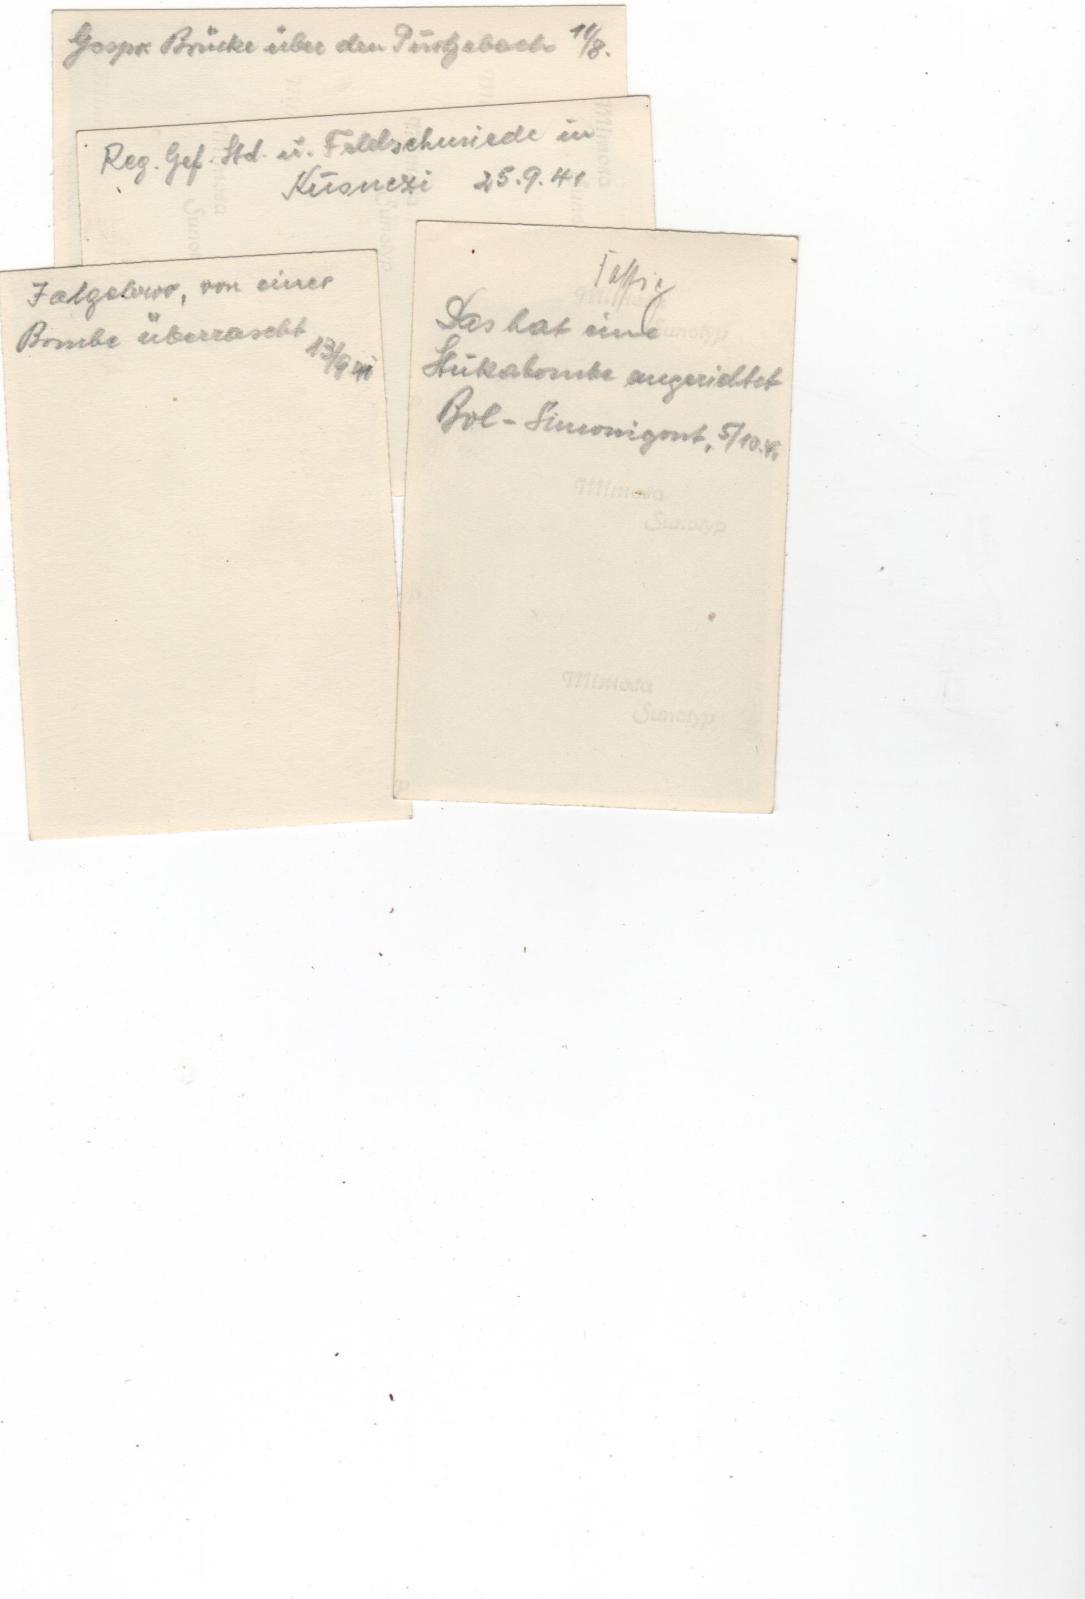 Gospr Brücke über den 11/8.
Reg. Gef. Std. u. Feldschmiede in
Kusnezi 25.9.41
Jalgelowo, von einer
Bombe überrascht
13/9 41
Das hat eine
Stukabombe angerichtet
Bol-Simonigont, 5/10.41
Mimosa
Sunotyp
Mimosa
Sunotyp
Mimosa
Sunotyp